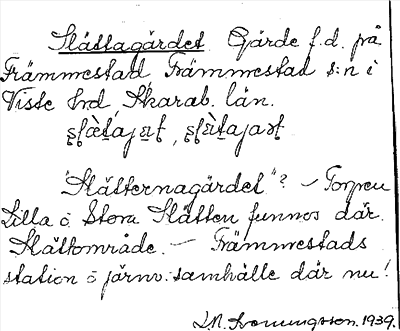 Slättagärdet Gärde f.d. på
Främmestad, Främmestad s:n i
Viste hrd, Skarab. län.
"Slätternagärdet"? – Torpen
Lilla o Stora Slätten funnos där.
Slättområde. – Främmestads
station o järnv. samhälle där nu!
1939.